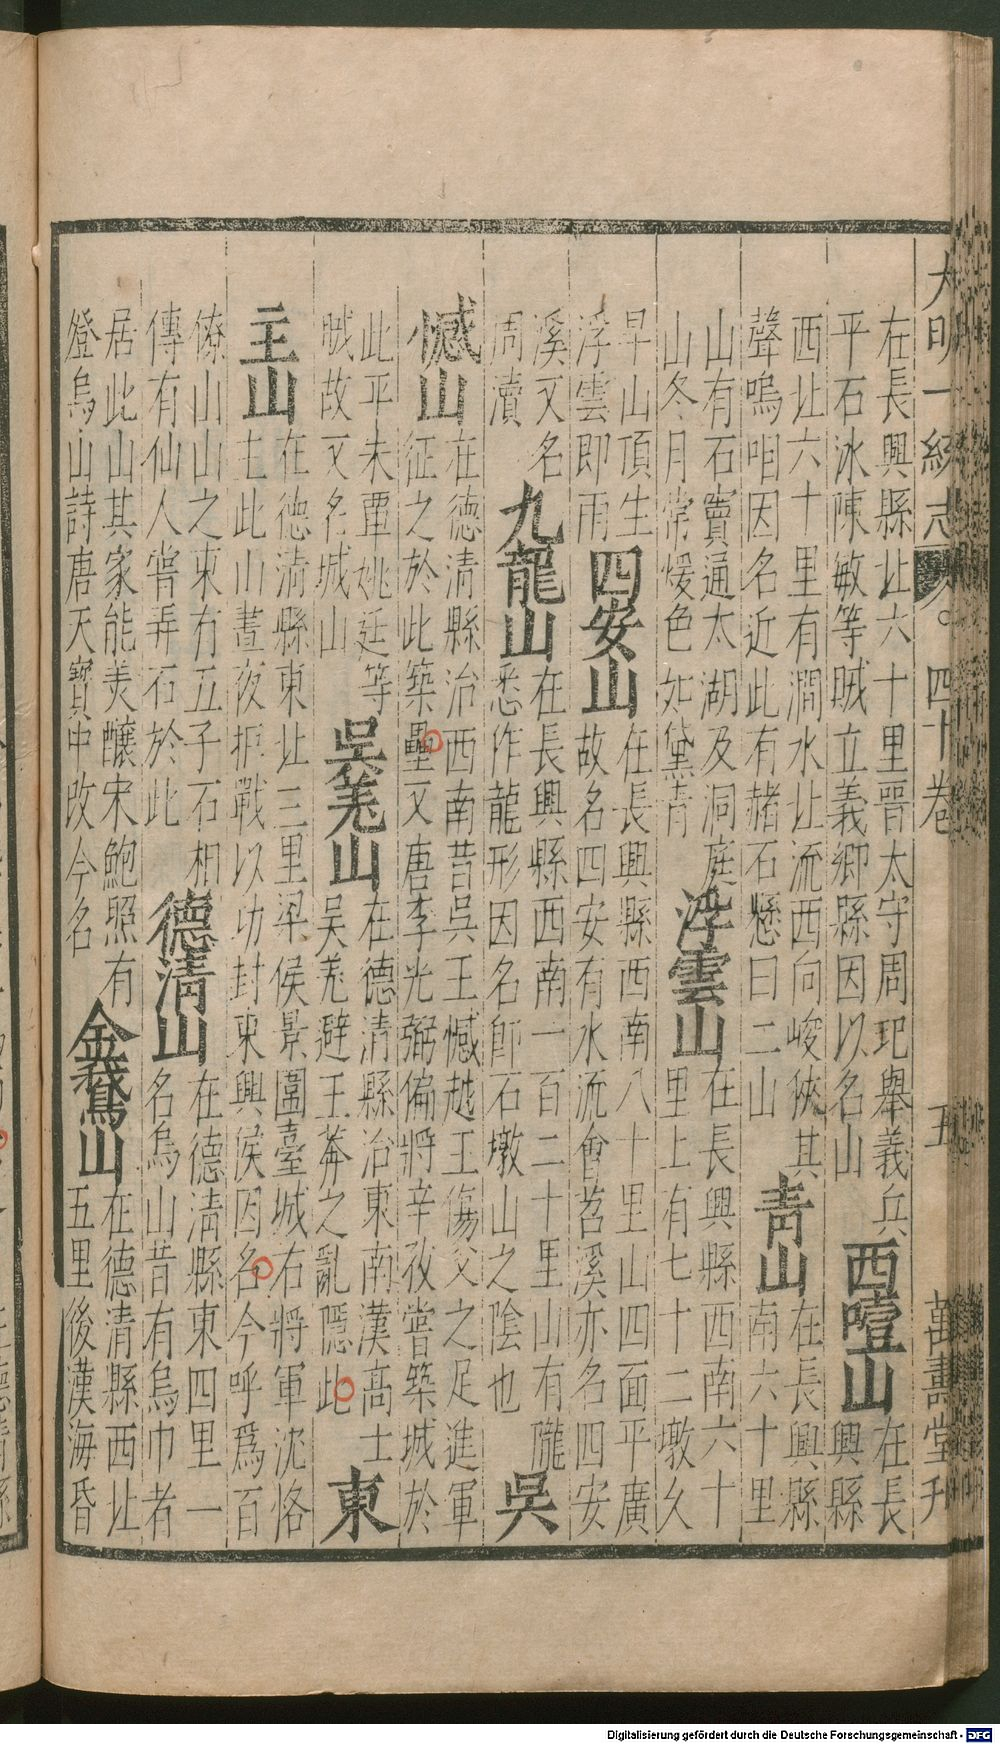 大明一統志 四十卷 五 萬壽堂刋
在長興縣北六十里晉太守周玘舉義兵
平石氷陳敏等賊立義鄉縣因以名山
西噎山
在長興縣
西北六十里有澗水北流西向峻狹其
聲嗚咽因名近此有赭石懸曰二山
青山
在長興縣
南六十里
山有石竇通太湖及洞庭
山冬月常煖色如黛青
浮雲山
在長興縣西南六十
里上有七十二墩久
旱山頂生
浮雲即雨
四安山
在長興縣西南八十里山四面平廣
故名四安有水流會苕溪亦名四安
溪又名
周瀆
九龍山
在長興縣西南一百二十里山有隴
悉作龍形因名卽石墩山之陰也
吳
憾山
在德清縣治西南昔吳王憾越王傷父之足進軍
征之於此築壘又唐李光弼偏將辛孜嘗築城於
此平朱覃姚廷等
賊故又名城山
吳羌山
在德清縣治東南漢高士
吳羌避王莽之亂隱此
東
主山
在德清縣東北三里梁侯景圍臺城右將軍沈恪
主此山晝夜拒戰以功封東興侯因名今呼爲百
僚山山之東有五子石相
傳有仙人嘗弄石於此
德清山
在德清縣東四里一
名烏山昔有烏巾者
居此山其家能美釀宋鮑照有
登烏山詩唐天寶中改今名
金鵞山
在德清縣西北
五里後漢海昏
Digitalisierung gefördert durch die Deutsche Forschungsgemeinschaft - DFG